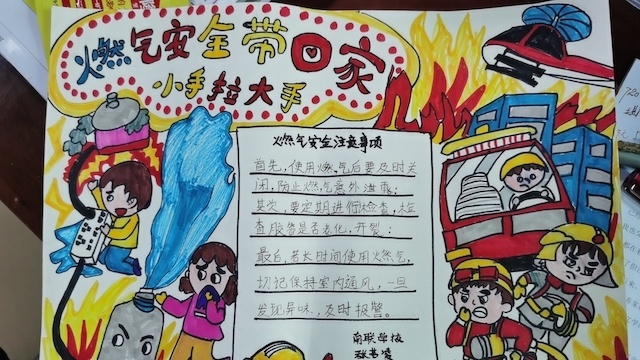 燃气安全带回家
小手拉大手
燃气安全注意事项
首先，使用燃气后要及时关
闭，防止燃气意外泄露；
其次，要定期进行检查，检
查胶管是否老化，开裂；
最后，若长时间使用燃气，
切记保持室内通风，一旦
发现异味，及时报警。
南联学校